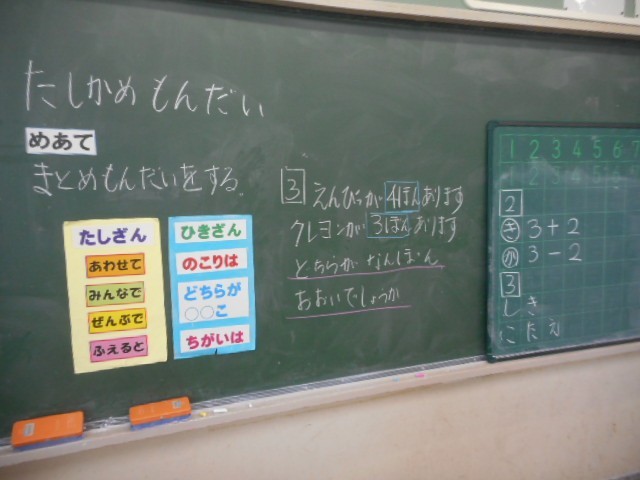 たしかめもんだい
めあて
まとめもんだいをする
たしざん
あわせて
みんなで
ぜんぶで
ふえると
ひきざん
のこりは
どちらが
○○こ
ちがいは
3 えんぴつが4ほんあります
クレヨンが3ぼんあります
どちらがなんぼん
おおいでしょうか
1 2 3 4 5 6 7
2
き 3+2
が 3-2
3
しき
こたえ